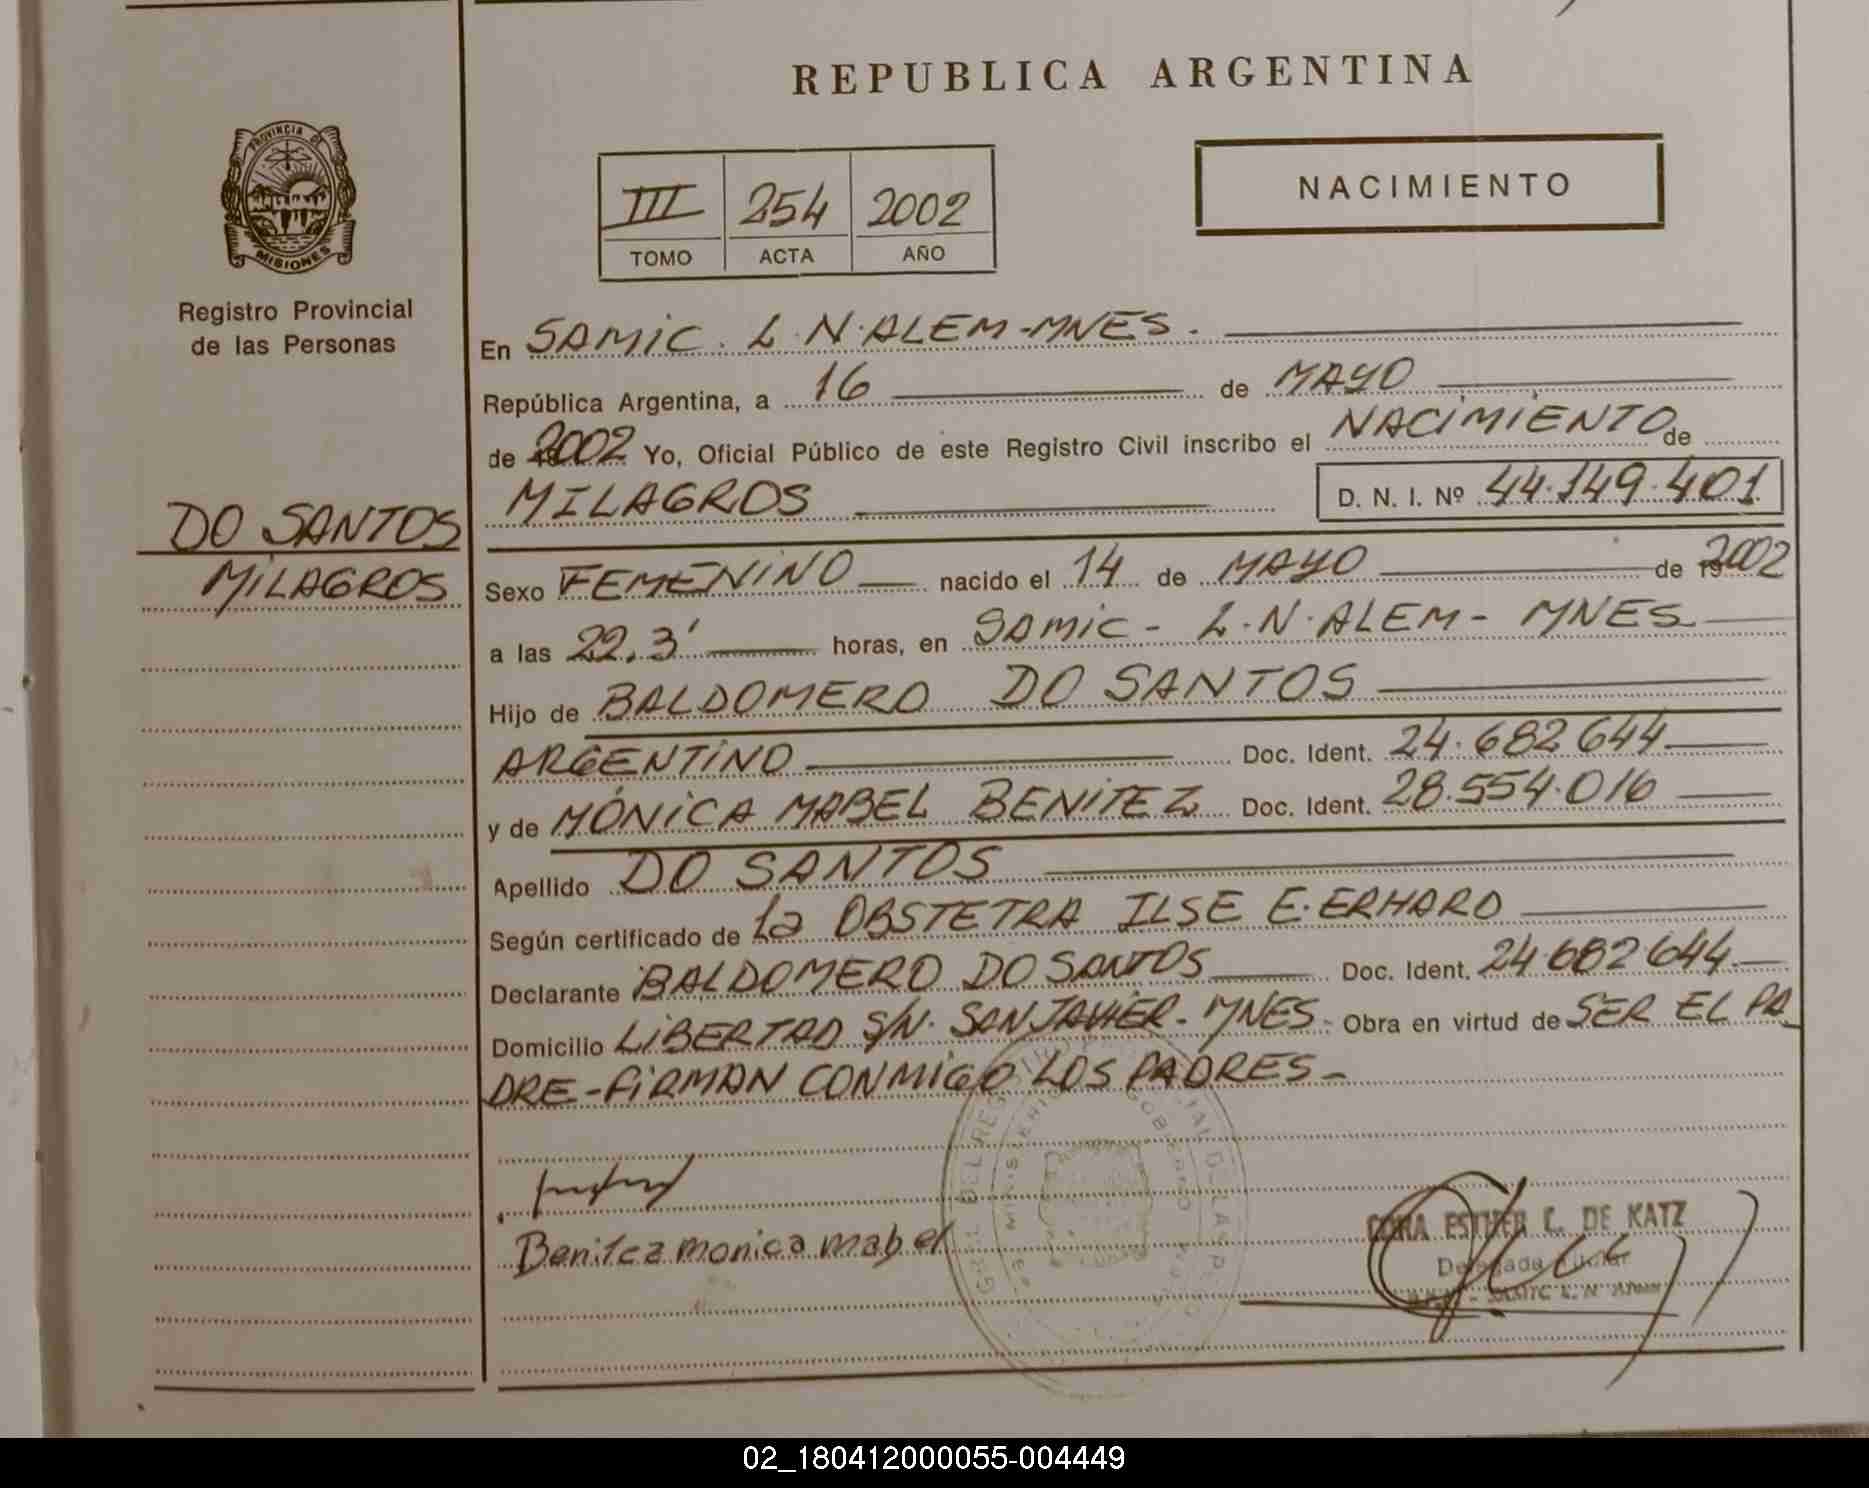 REPUBLICA ARGENTINA
PROVINCIA DE
MISIONES
Registro Provincial
de las Personas
III 254 2002
TOMO ACTA AÑO
NACIMIENTO
DO SANTOS
MILAGROS
En SAMIC. L.N.ALEM-MNES.
República Argentina, a 16 de MAYO
de 2002 Yo, Oficial Público de este Registro Civil inscribo el NACIMIENTO de
MILAGROS D. N. I. Nº 44.149.401
Sexo FEMENINO nacido el 14 de MAYO de 2002
a las 22,3' horas, en SAMIC - L.N.ALEM - MNES
Hijo de BALDOMERO DO SANTOS
ARGENTINO Doc. Ident. 24.682.644
y de MÓNICA MABEL BENITEZ Doc. Ident. 28.554.016
Apellido DO SANTOS
Según certificado de la OBSTETRA ILSE E. ERHARD
Declarante BALDOMERO DO SANTOS Doc. Ident. 24.682.644
Domicilio LIBERTAD S/N. SAN JAVIER - MNES - Obra en virtud de SER EL PA_
DRE - FIRMAN CONMIGO LOS PADRES -
Benitez monica mabel
ESTHER C. DE KATZ
Delegada Titular
02_180412000055-004449